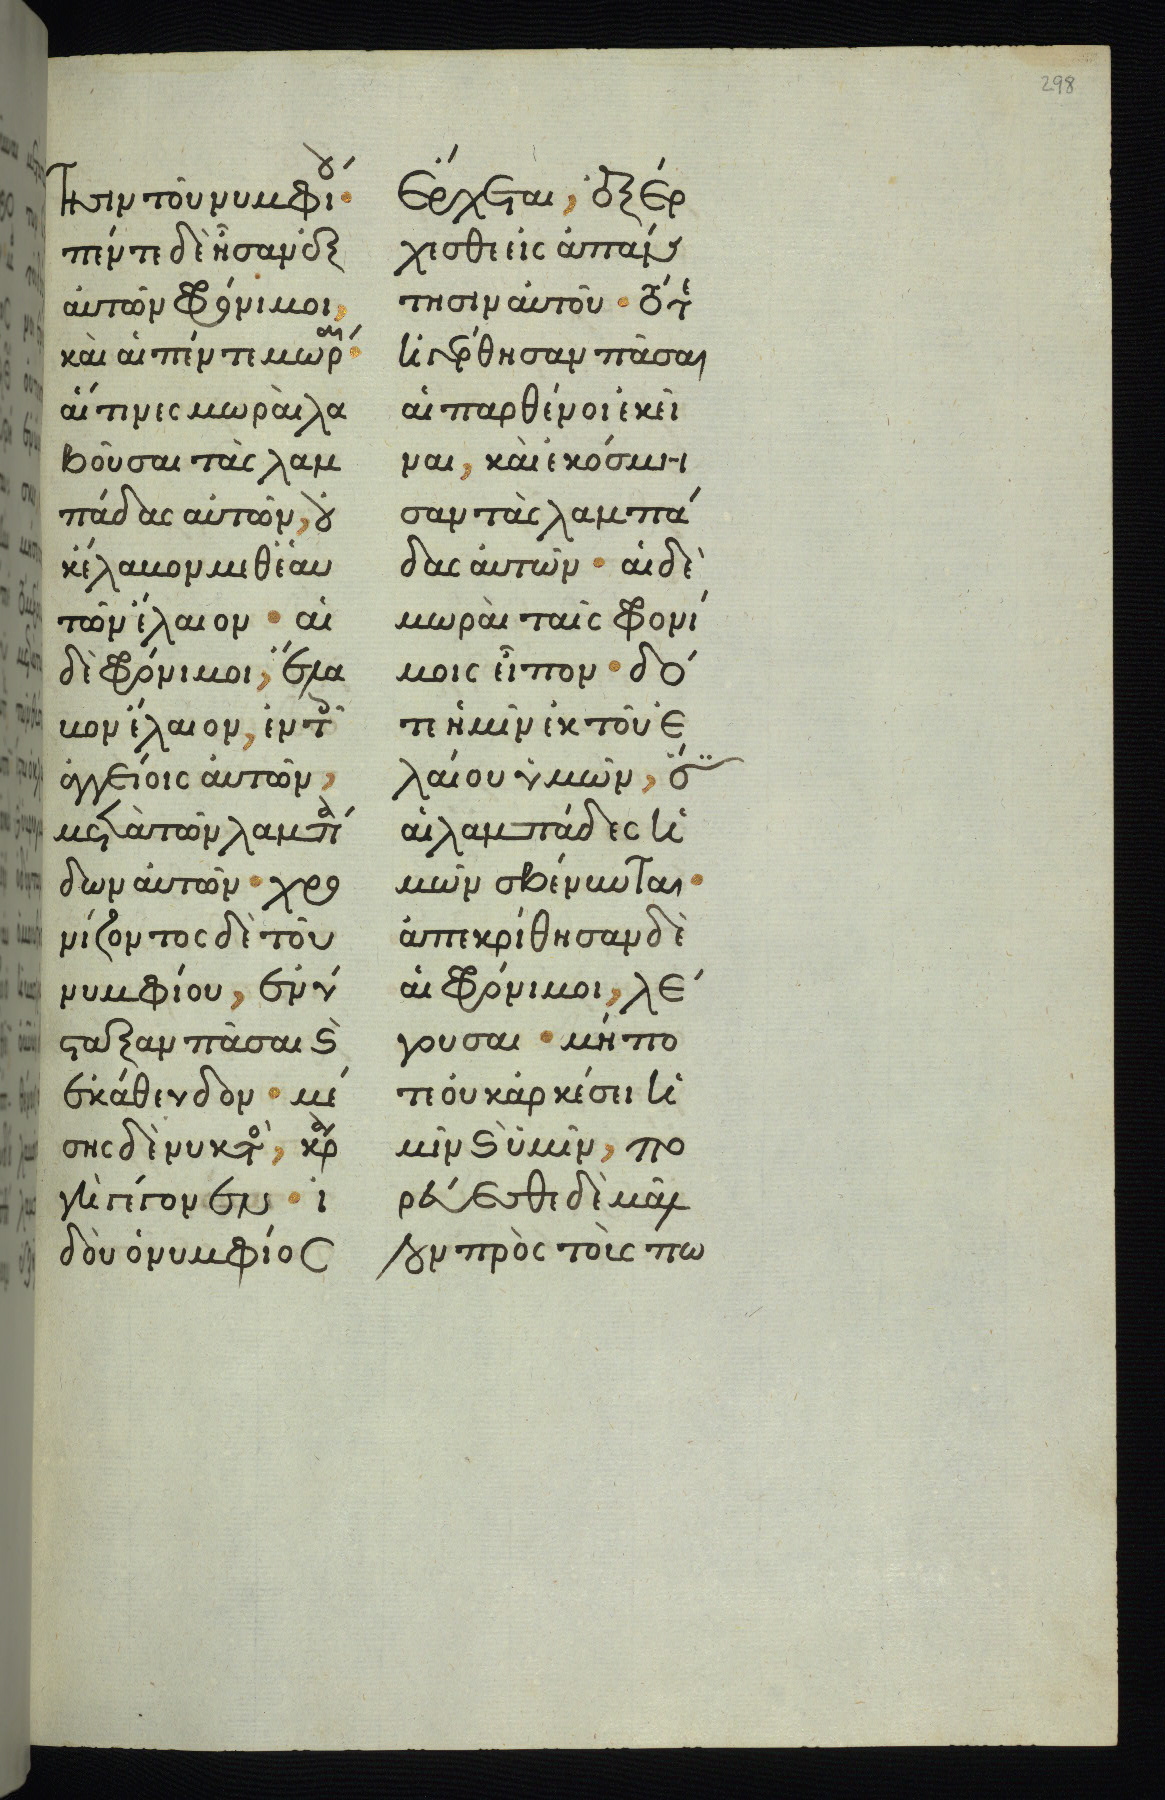 298
τησιν τοῦ νυμφίου·
πέντε δὲ ἦσαν ἐξ
αὐτῶν φρόνιμοι,
καὶ αἱ πέντε μωραί·
αἵτινες μωραὶ λα
βοῦσαι τὰς λαμ
πάδας αὐτῶν, οὐ
κ ἔλαβον μεθ' ἑαυ
τῶν ἔλαιον · αἱ
δὲ φρόνιμοι, ἔλα
βον ἔλαιον, ἐν τοῖς
ἀγγείοις αὐτῶν,
μετὰ τῶν λαμπά
δων αὐτῶν · χρο
νίζοντος δὲ τοῦ
νυμφίου, ἐνύ
σταξαν πᾶσαι καὶ
ἐκάθευδον · μέ
σης δὲ νυκτὸς, κραυ
γὴ γέγονεν · ἰ
δοὺ ὁ νυμφίος
ἔρχεται, ἐξέρ
χεσθε εἰς ἀπάν
τησιν αὐτοῦ · τότε
ἠγέρθησαν πᾶσαι
αἱ παρθένοι ἐκεῖ
ναι, καὶ ἐκόσμη
σαν τὰς λαμπά
δας αὐτῶν · αἱ δὲ
μωραὶ ταῖς φρονί
μοις εἶπον · δό
τε ἡμῖν ἐκ τοῦ ἐ
λαίου ὑμῶν, ὅτι
αἱ λαμπάδες ἡ
μῶν σβέννυνται ·
ἀπεκρίθησαν δὲ
αἱ φρόνιμοι, λέ
γουσαι · μήπο
τε οὐκ ἀρκέσει ἡ
μῖν καὶ ὑμῖν, πο
ρεύεσθε δὲ μᾶλ
λον πρὸς τοὺς πω